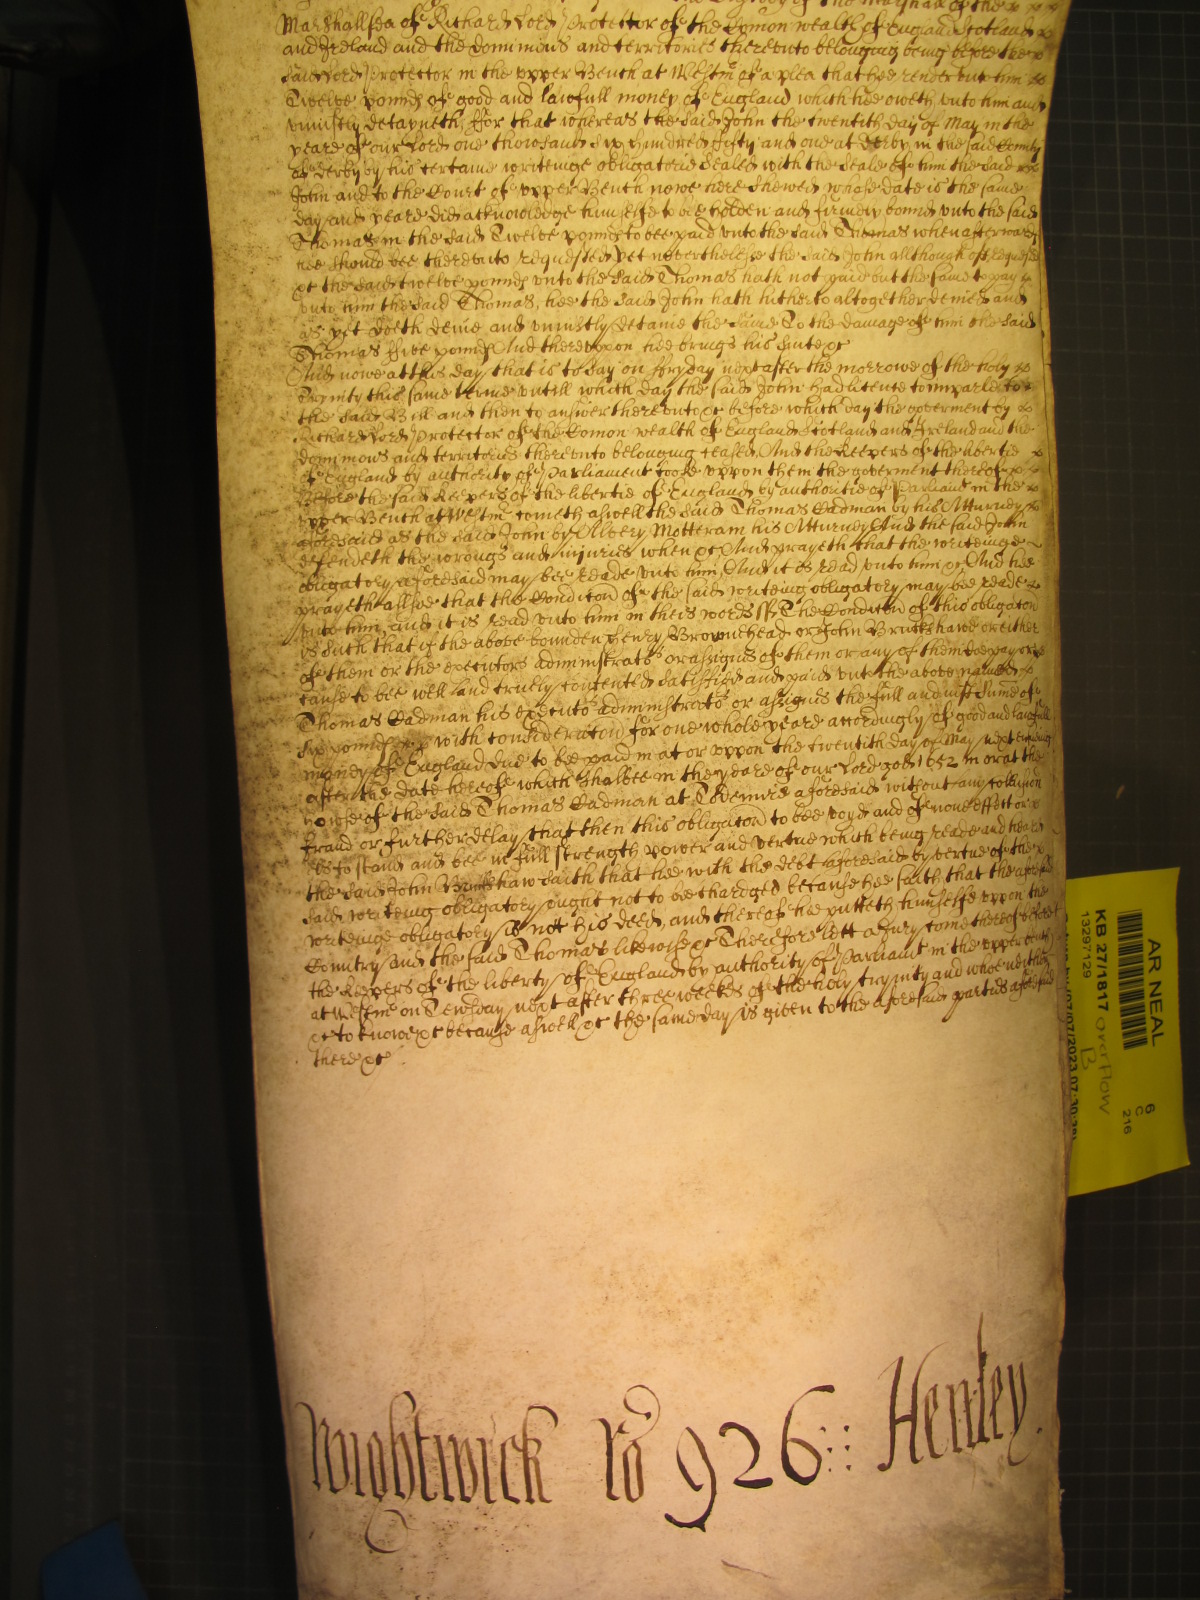 Marshallsea of Richard Lord Protector of the Comon wealth of England Scotland x
and Ireland and the dominions and territories thereunto belonging being before the x
said Lord Protector in the upper Bench at Westm of a plea that hee render unto him xx
Twelve pounds of good and lawfull money of England which hee oweth unto him and
uniustly detayneth, ffor that whereas the said John the twentith day of May in the
yeare of our Lord one thowsand six hundred fifty and one at Derby in the said County
of Derby by his certaine writeinge obligatorie sealed with the seale of him the said xx
John and to the Court of upper Bench nowe here shewed whose date is the same
day and yeare did acknowledge himselfe to bee holden and firmely bound unto the said
Thomas in the said Twelve pounds to bee paid unto the said Thomas when afterwards
hee should bee thereunto requested yet neverthelesse the said John although oft requested
xc the said twelve pounds unto the said Thomas hath not paid but the same to pay x
unto him the said Thomas, hee the said John hath hitherto altogether denied and
as yet doeth denie and uniustly detaine the same To the damage of him the said
Thomas ffive pounds And thereupon hee brings his suite xc
And nowe at this day that is to say on ffryday next after the morrowe of the holy x
Trynity this same terme untill which day the said John had licence to imparle to x
the said Bill and then to answer thereunto xc before which day the goverment by x
Richard Lord Protector of the Comon wealth of England Scotland and Ireland and the
dominions and territories thereunto belonging ceased, And the Keepers of the libertie x
of England by authority of Parliament tooke uppon them the goverment thereof x x
Before the said Keepers of the libertie of England by authoritie of Parliamt in the x
upper Bench at Westm cometh aswell the said Thomas Cadman by his Atturney x
aforesaid as the said John by Alvery Motteram his Atturney And the said John
defendeth the wrongs and injuries when xc And prayeth that the writeinge
obligatory aforesaid may bee reade unto him, And it is read unto him xc And hee
prayeth allsoe that the Condicon of the said writeing obligatory may bee reade x
unto him, and it is read unto him in theis words ss The Condicon of this obligacon
is such that if the above bounden Henry Brownehead or John Bruckshawe or either
of them or the executors administrators or assignes of them or any of them doe pay or
cause to bee well and truely contented satisfied and paid unto the above named x
Thomas Cadman his executors administrators or assignes the full and iust sume of
six pounds with consideracon for one whole yeare accordingly of good and lawfull
money of England due to be paid in at or uppon the twentith day of May next ensuing
after the date hereof which shalbee in the yeare of our Lord god 1652 in or at the
howse of the said Thomas Cadman at aforesaid without any collusion
fraud or further delay, that then this obligacon to bee voyd and of none effect or x
els to stand and bee in full strength power and vertue which being reade and heard
the said John Bruckshaw saith that hee with the debt aforesaid by vertue of the x
said writeing obligatory ought not to be chardged because hee saith that the aforesaid
writeinge obligatory is not his deed, and thereof hee putteth himselfe uppon the
Countrey and the said Thomas likewise xc Therefore lett a Jury come thereof before
the Keepers of the liberty of England by authority of Parliamt in the upper bench
at Westm on Tewsday next after three weekes of the holy trynity and whoe neither
xc to knowe xc because aswell xc the same day is given to the aforesaid parties aforesaid
there xc
Wightwick Ro 926 :: Henley.
AR NEAL
6
C
216
KB 27/1817 overflow
B
13297129